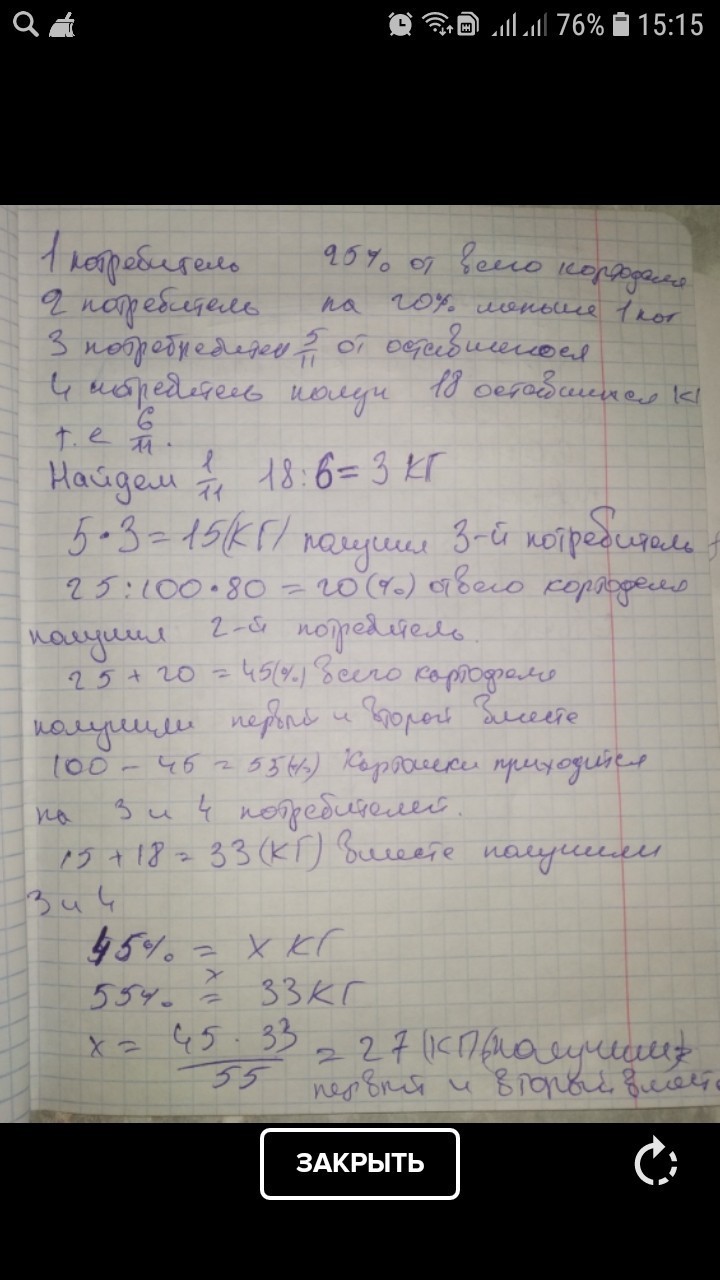 76% 15:15
1 потребитель 25% от всего кортофеля
2 потребитель на 20% меньше 1 пот
3 5/11 от оставшегося
4 потребитель получ 18 оставшихся кг
т. е 6/11.
Найдем 1/11 18:6=3 КГ
5·3=15(КГ) получил 3-й потребитель
25:100·80=20(%) отвсего кортофеля
получил 2-й потребитель.
25+20=45(%) всего картофеля
получили первый и второй вместе
100-45=55(%) Картошки приходится
на 3 и 4 потребителей.
15+18=33(КГ) вместе получили
3 и 4
45% = х КГ
55% = 33КГ
х = 45·33/55 = 27 (КГ) (получили
первый и второй вместе
ЗАКРЫТЬ